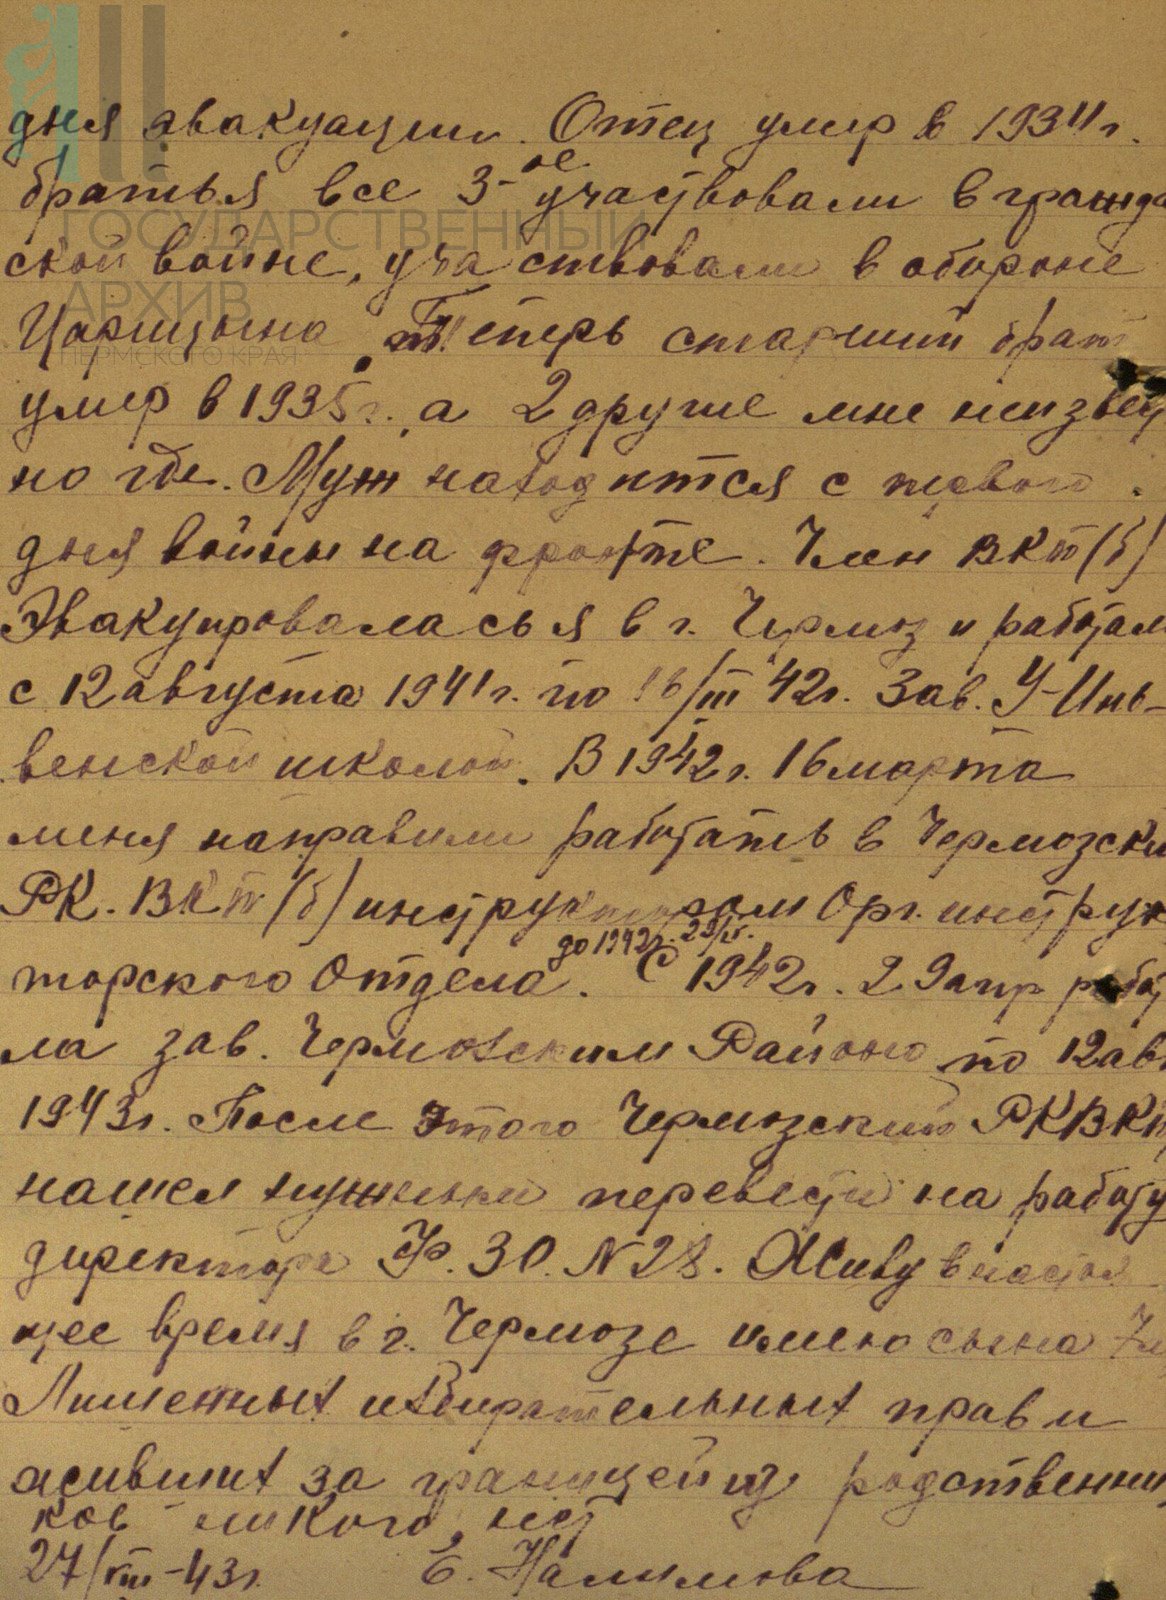 дня эвакуации. Отец умер в 1934г.
братья все 3-ое участвовали в гражда
ской войне, участвовали в обороне
ГОСУДАРСТВЕННЫЙ
АРХИВ
ПЕРМСКОГО КРАЯ
Царицына. Теперь старший брат
умер в 1935г., а 2 другие мне неизвест
но где. Муж находится с первого
дня войны на фронте. Член ВКП(б)
Эвакуировалась я в г. Чермоз и работала
с 12 августа 1941г. по 16/III 42г. Зав. У-Инь-
венской школой. В 1942г. 16 марта
меня направили работать в Чермозски
РК. ВКП(б) инструктором Орг. инструк
до 1942г. 29/IV.
торского Отдела. С 1942г. 29 апр работ
ла зав. Чермозским Районо по 12 авг
1943г. После этого Чермозский РКВКП
нашел нужным перевести на работу
директора Ф.ЗО. N28. Живу в настоя
щее время в г. Чермозе имею сына
Лишенных избирательных прав и
живших за границей из родственни
ков никого нет
27/VIII-43г. Е. Налимова